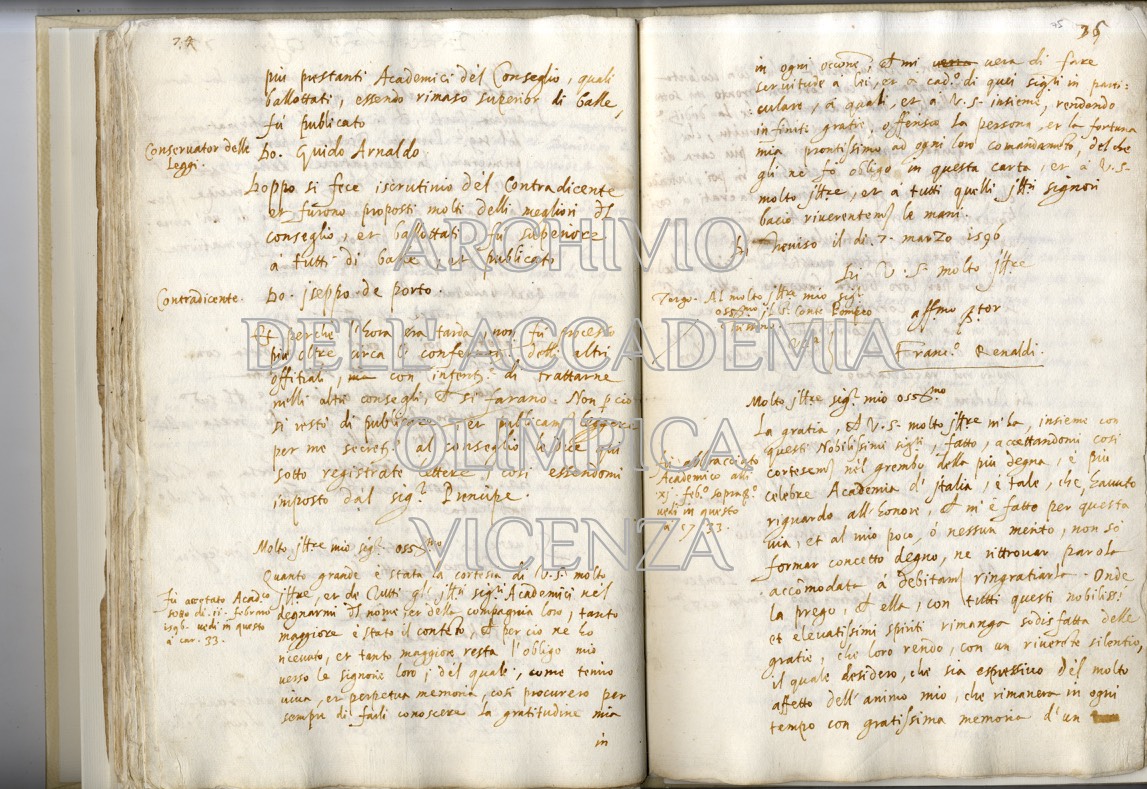 74
più prestanti Academici del Conseglio, quali
ballottati, essendo rimaso superior di balle,
fù publicato
Conservator delle Leggi.
Do. Guido Arnaldo.
Doppo si fece iscrutinio del Contradicente
et furono proposti molti delli megliori del
conseglio, et ballottati fu superiore
à tutti di balle, et publicato
Contradicente.
Do. Iseppo de porto.
Et perche l'hora era tarda, non fu processo
più oltre circa le conferme delli altri
offitiali, ma con intent.e di trattarne
nelli altri consegli, che si farano. Non p ciò
si restò di publicare, et publicam.te leggere
per me secret.o al conseglio le due qui
sotto registrate lettere, così essendomi
imposto dal sig.r Principe.
Molto Ill.re mio sig.r oss.mo
Fù accettato Acad.co
sotto dì. 11. febraro
1596. vedi in questo
à car. 33.
Quanto grande è stata la cortesia di V.S. molto
Ill.re et de tutti gli Ill.ri sig.ri Academici nel
degnarmi del nome et della compagnia loro, tanto
maggiore è stato il contento, che per ciò ne ho
ricevuto, et tanto maggiore resta l'obligo mio
verso le signorie loro; del quale, come tenirò
viva, et perpetua memoria, così procurerò per
sempre di farli conoscere la gratitudine mia
in
75
35
in ogni occone, che mi verrà di fare
serviture à lei, et à cad.o di quei sig.ri in parti:
culare, à quali, et à V.S. insieme, rendendo
infinite gratie, offerisco la persona, et la fortuna
mia prontissima ad ogni loro comandameto, del che
gli ne fò obligo in questa carta, et à V.S.
molto Ill.re, et à tutti quelli Ill.ri signori
bacio riverentem.te le mani.
Di Treviso il dì 7. marzo 1596
Di V.S. molto Ill.re
Tergo. Al molto Ill.re mio sig.r
oss.mo il S. Conte Pompeo
aff.mo s.tor
Franc.o Renaldi.
Molto Ill.re sig.r mio oss.mo
Fù abbracciato
Academico adì
XI. feb.o sopras.to
vedi in questo
à 57/33.
La gratia, che V.S. molto Ill.re m'ha, insieme con
questi Nobilissimi sig.ri, fatto, accettandomi così
cortesem.te nel grembo della più degna, e più
celebre Academia d'Italia, è tale, che, havuto
riguardo all'honore, che m'è fatto per questa
via, et al mio poco, ò nessun merito, non sò
formar concetto degno, ne ritrovar parola
accomodata à debitam.te ringratiarla. Onde
la prego, che ella, con tutti questi nobiliss.i
et elevatissimi spiriti rimanga sodisfatta delle
gratie, che loro rendo, con un riverete silentio,
il quale desidero, che sia espressivo del molto
affetto dell'animo mio, che rimanerà in ogni
tempo con gratissima memoria d'un
ARCHIVIO
DELL'ACCADEMIA
OLIMPICA
VICENZA